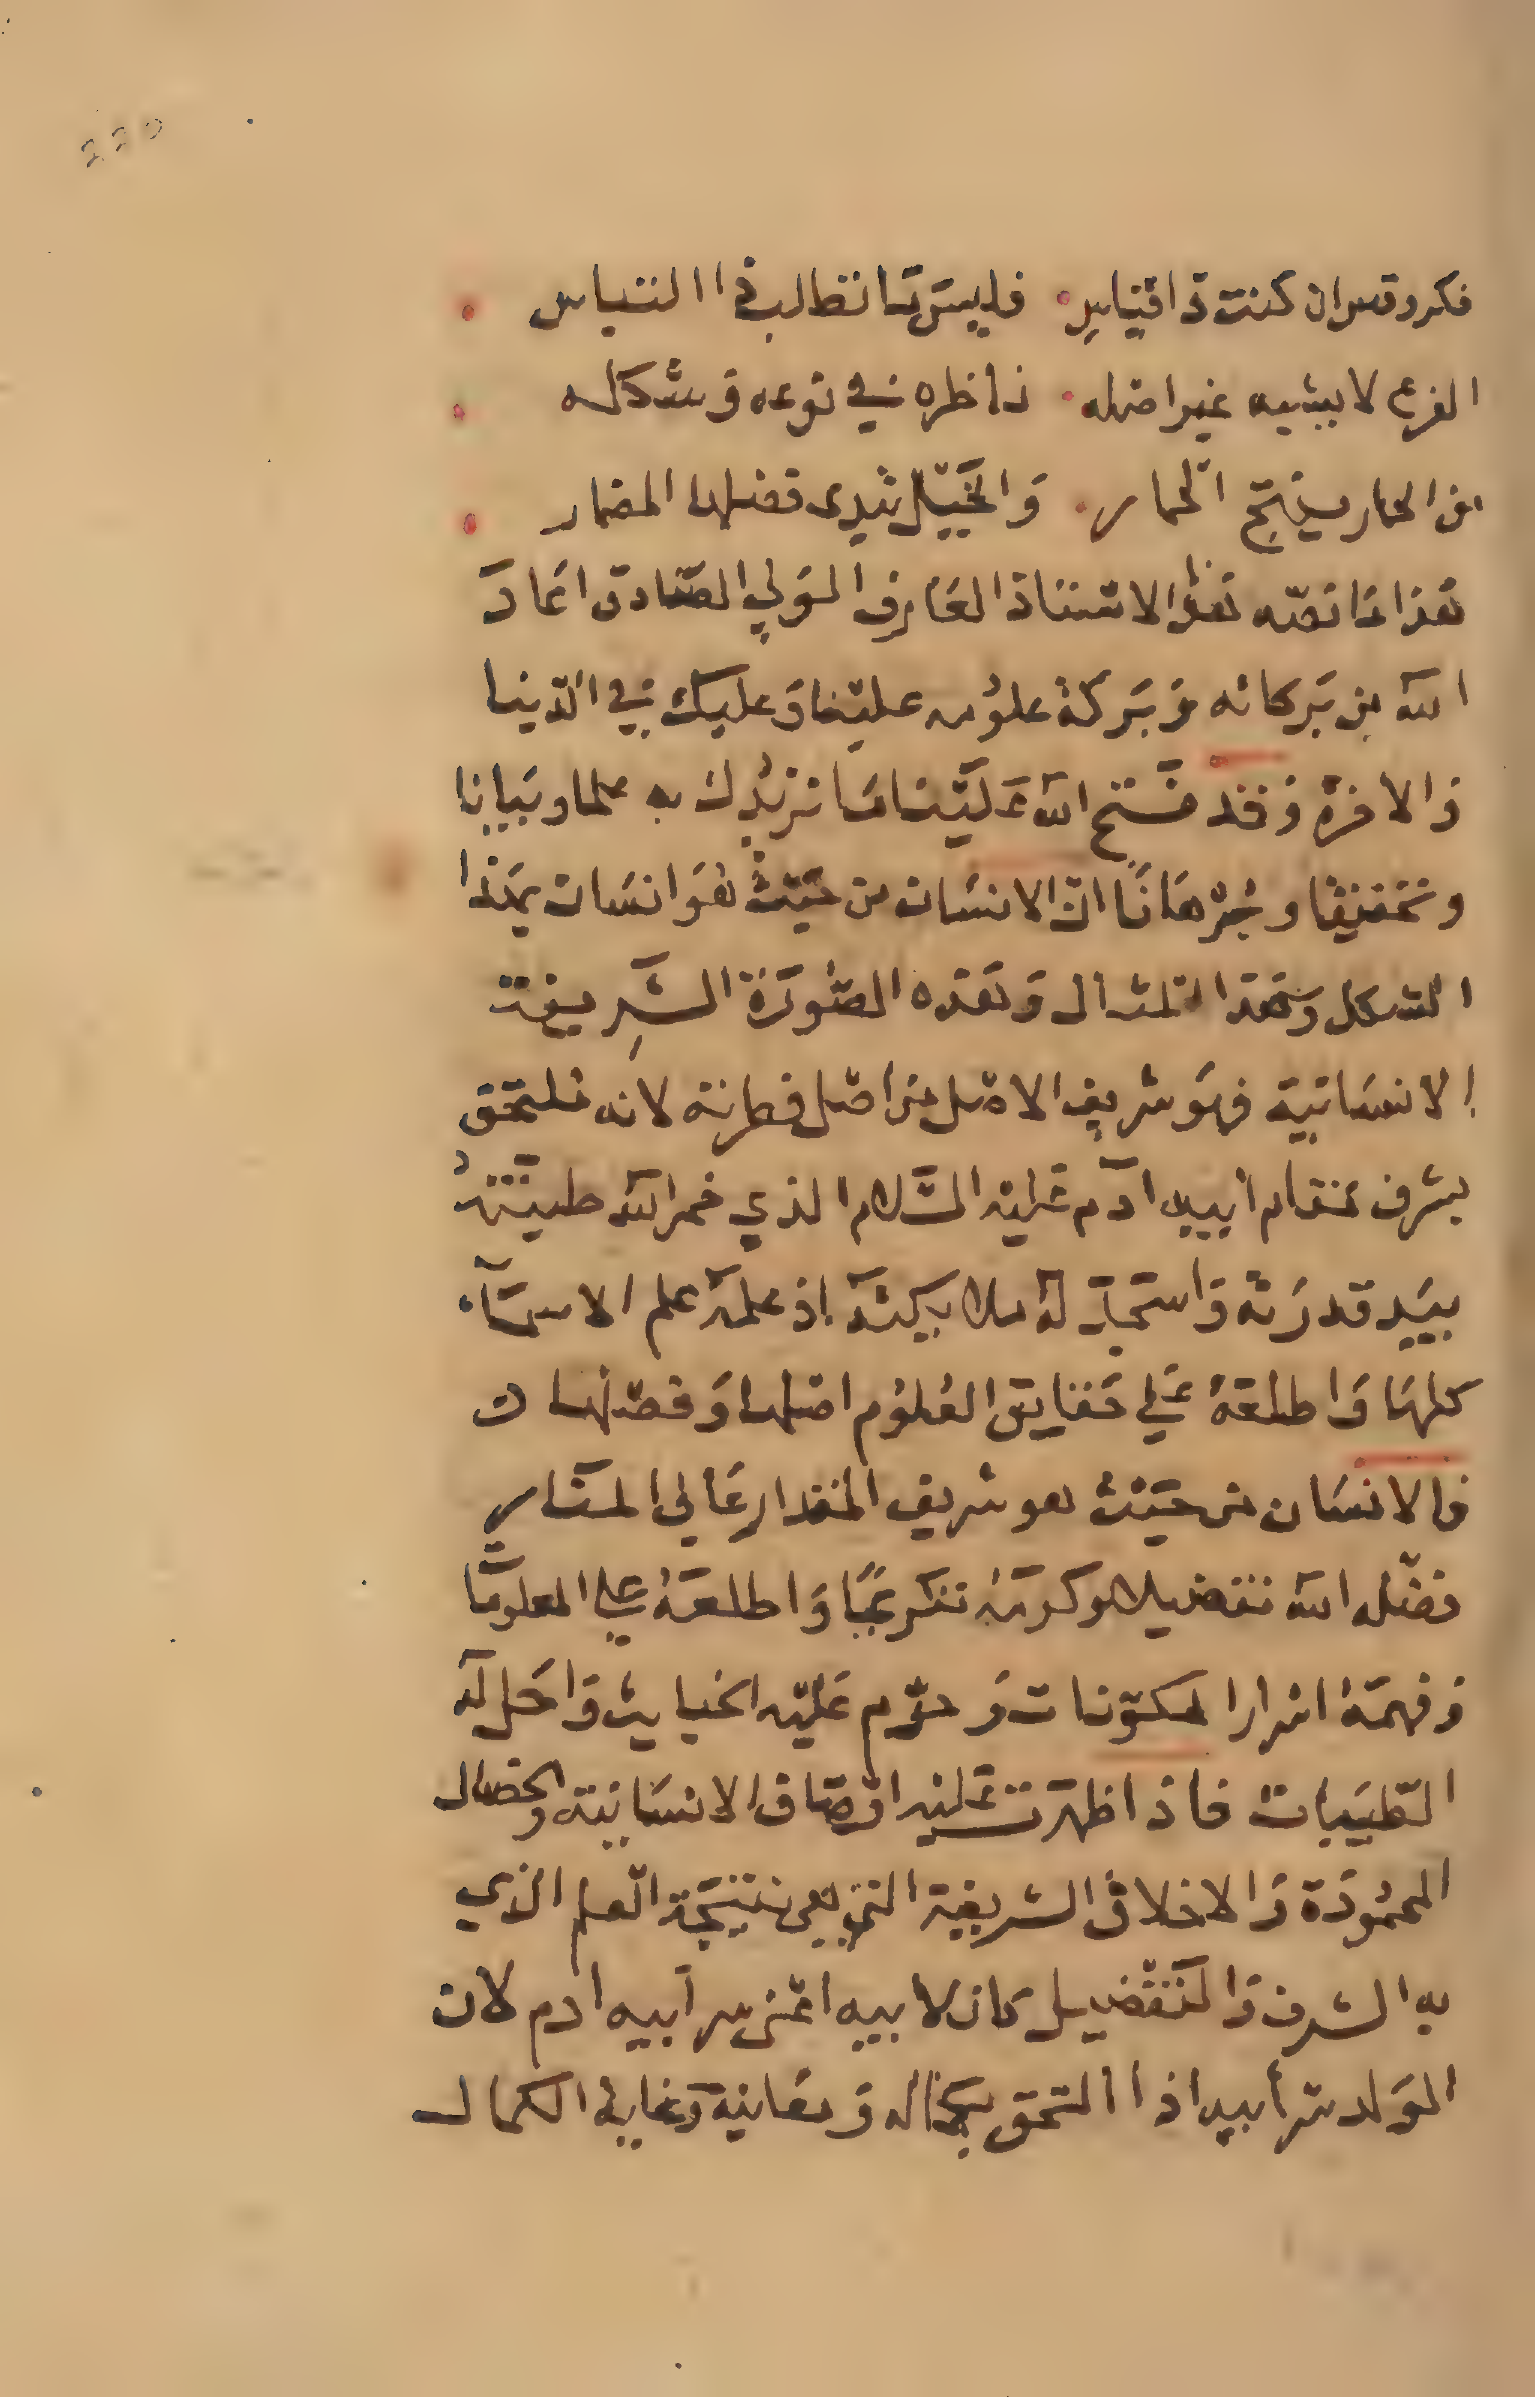 220
فكر وقس ان كنت ذا اقتباس فليس ما نطالب ذا التباس
الفرع لا يشبه غير اصله ناظره في نوعه وشكله
ابن الحمار ينتج الحمار والخيل يبدي فضلها المضمار
هذا ما نصه هذا الاستاذ العارف الولي الصادق اعاد
الله من بركاته وبركة علومه علينا وعليك في الدنيا
والاخرة وقد فتح الله علينا ما نزيدك به علما وبيانا
وتحقيقا وبرهانا ان الانسان من حيث هو انسان بهذا
الشكل وهذا المثال وهذه الصورة الشريفة
الانسانية فهو شريف الاصل من اصل فطرته لانه ملتحق
بشرف مقام ابيه آدم عليه السلام الذي خمر الله طينته
بيد قدرته واسجد له ملائيكته اذ علمه علم الاسماء
كلها واطلعه على حقايق العلوم اصلها وفصلها
فالانسان من حيث هو شريف المقدار عالي المنار
فضله الله تفضيلا وكرمه تكريما واطلعه على المعلوما
وفهمه اسرار المكونات وحرم عليه الخبايث واحل له
الطيبات فاذا ظهرت عليه اوصاف الانسانية والخصال
المحمودة والاخلاق الشريفة التي هي نتيجة العلم الذي
به الشرف والتفضيل كان لابيه اعني سر ابيه ادم لان
الولد سر ابيه اذا التحق بكماله ومعانيه وغاية الكمال